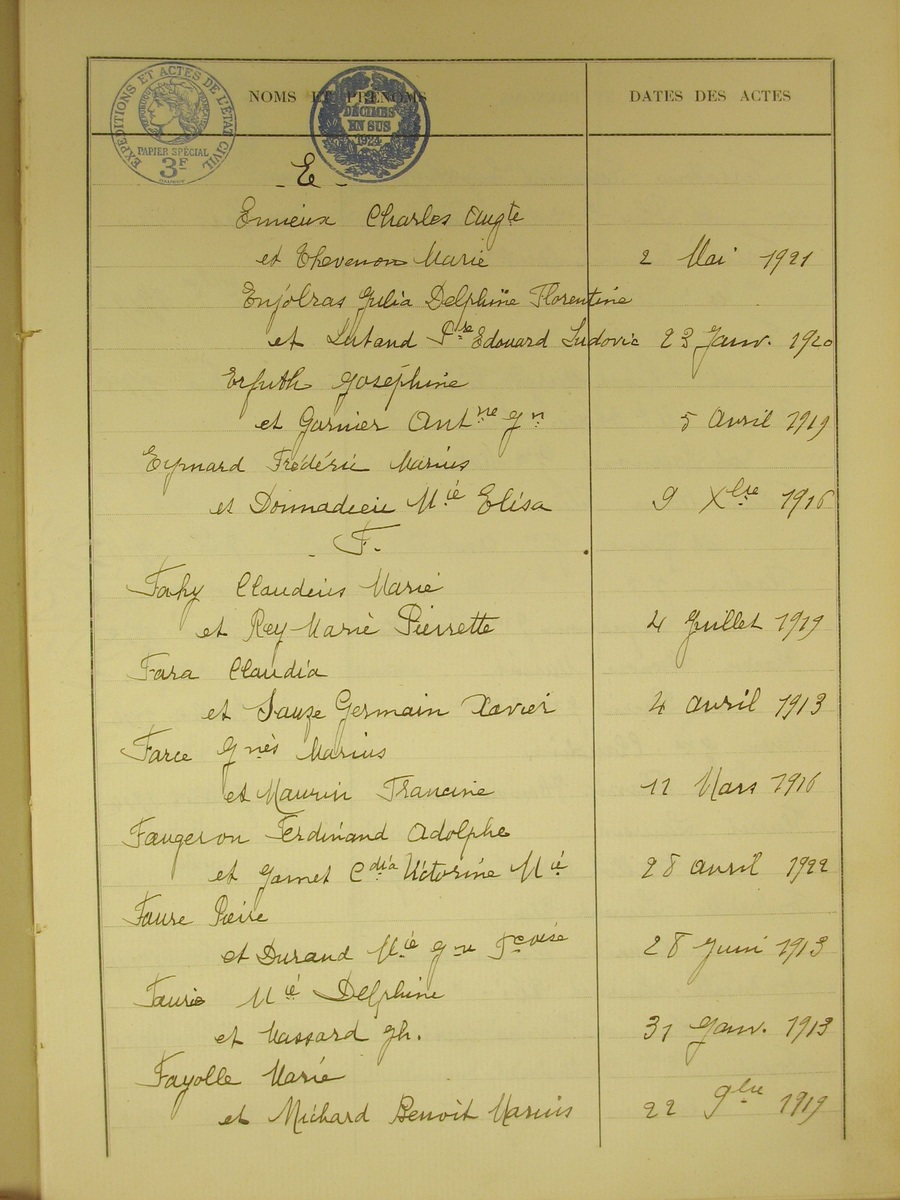 EXPÉDITIONS ET ACTES DE L'ÉTAT CIVIL
RÉPUBLIQUE FRANÇAISE
PAPIER SPÉCIAL
3F
2
DÉCIMES
EN SUS
1924
NOMS ET PRÉNOMS DATES DES ACTES
- E -
Emieux Charles Augte
et Thevenon Marie 2 Mai 1921
Enjolras Julia Delphine Florentine
et Lutand Pre Edouard Ludovic 23 Janv. 1920
Erfuth Joséphine
et Garnier Antne Jn 5 Avril 1919
Eymard Frédéric Marius
et Donnadieu Mie Elisa 9 Xbre 1916
- F. -
Fahy Claudius Marie
et Rey Marie Pierrette 4 Juillet 1919
Fara Claudia
et Sauze Germain Xavier 4 avril 1913
Farce Marius
et Maurin Francine 11 Mars 1916
Faugeron Ferdinand Adolphe
et Gamet Cdia Victorine Mie 28 avril 1922
Faure Pierre
et Durand Mie Jne Fcoise 28 Juin 1913
Faurie Mie Delphine
et Massard Jh. 31 Janv. 1913
Fayolle Marie
et Michard Benoit Marius 22 9bre 1919